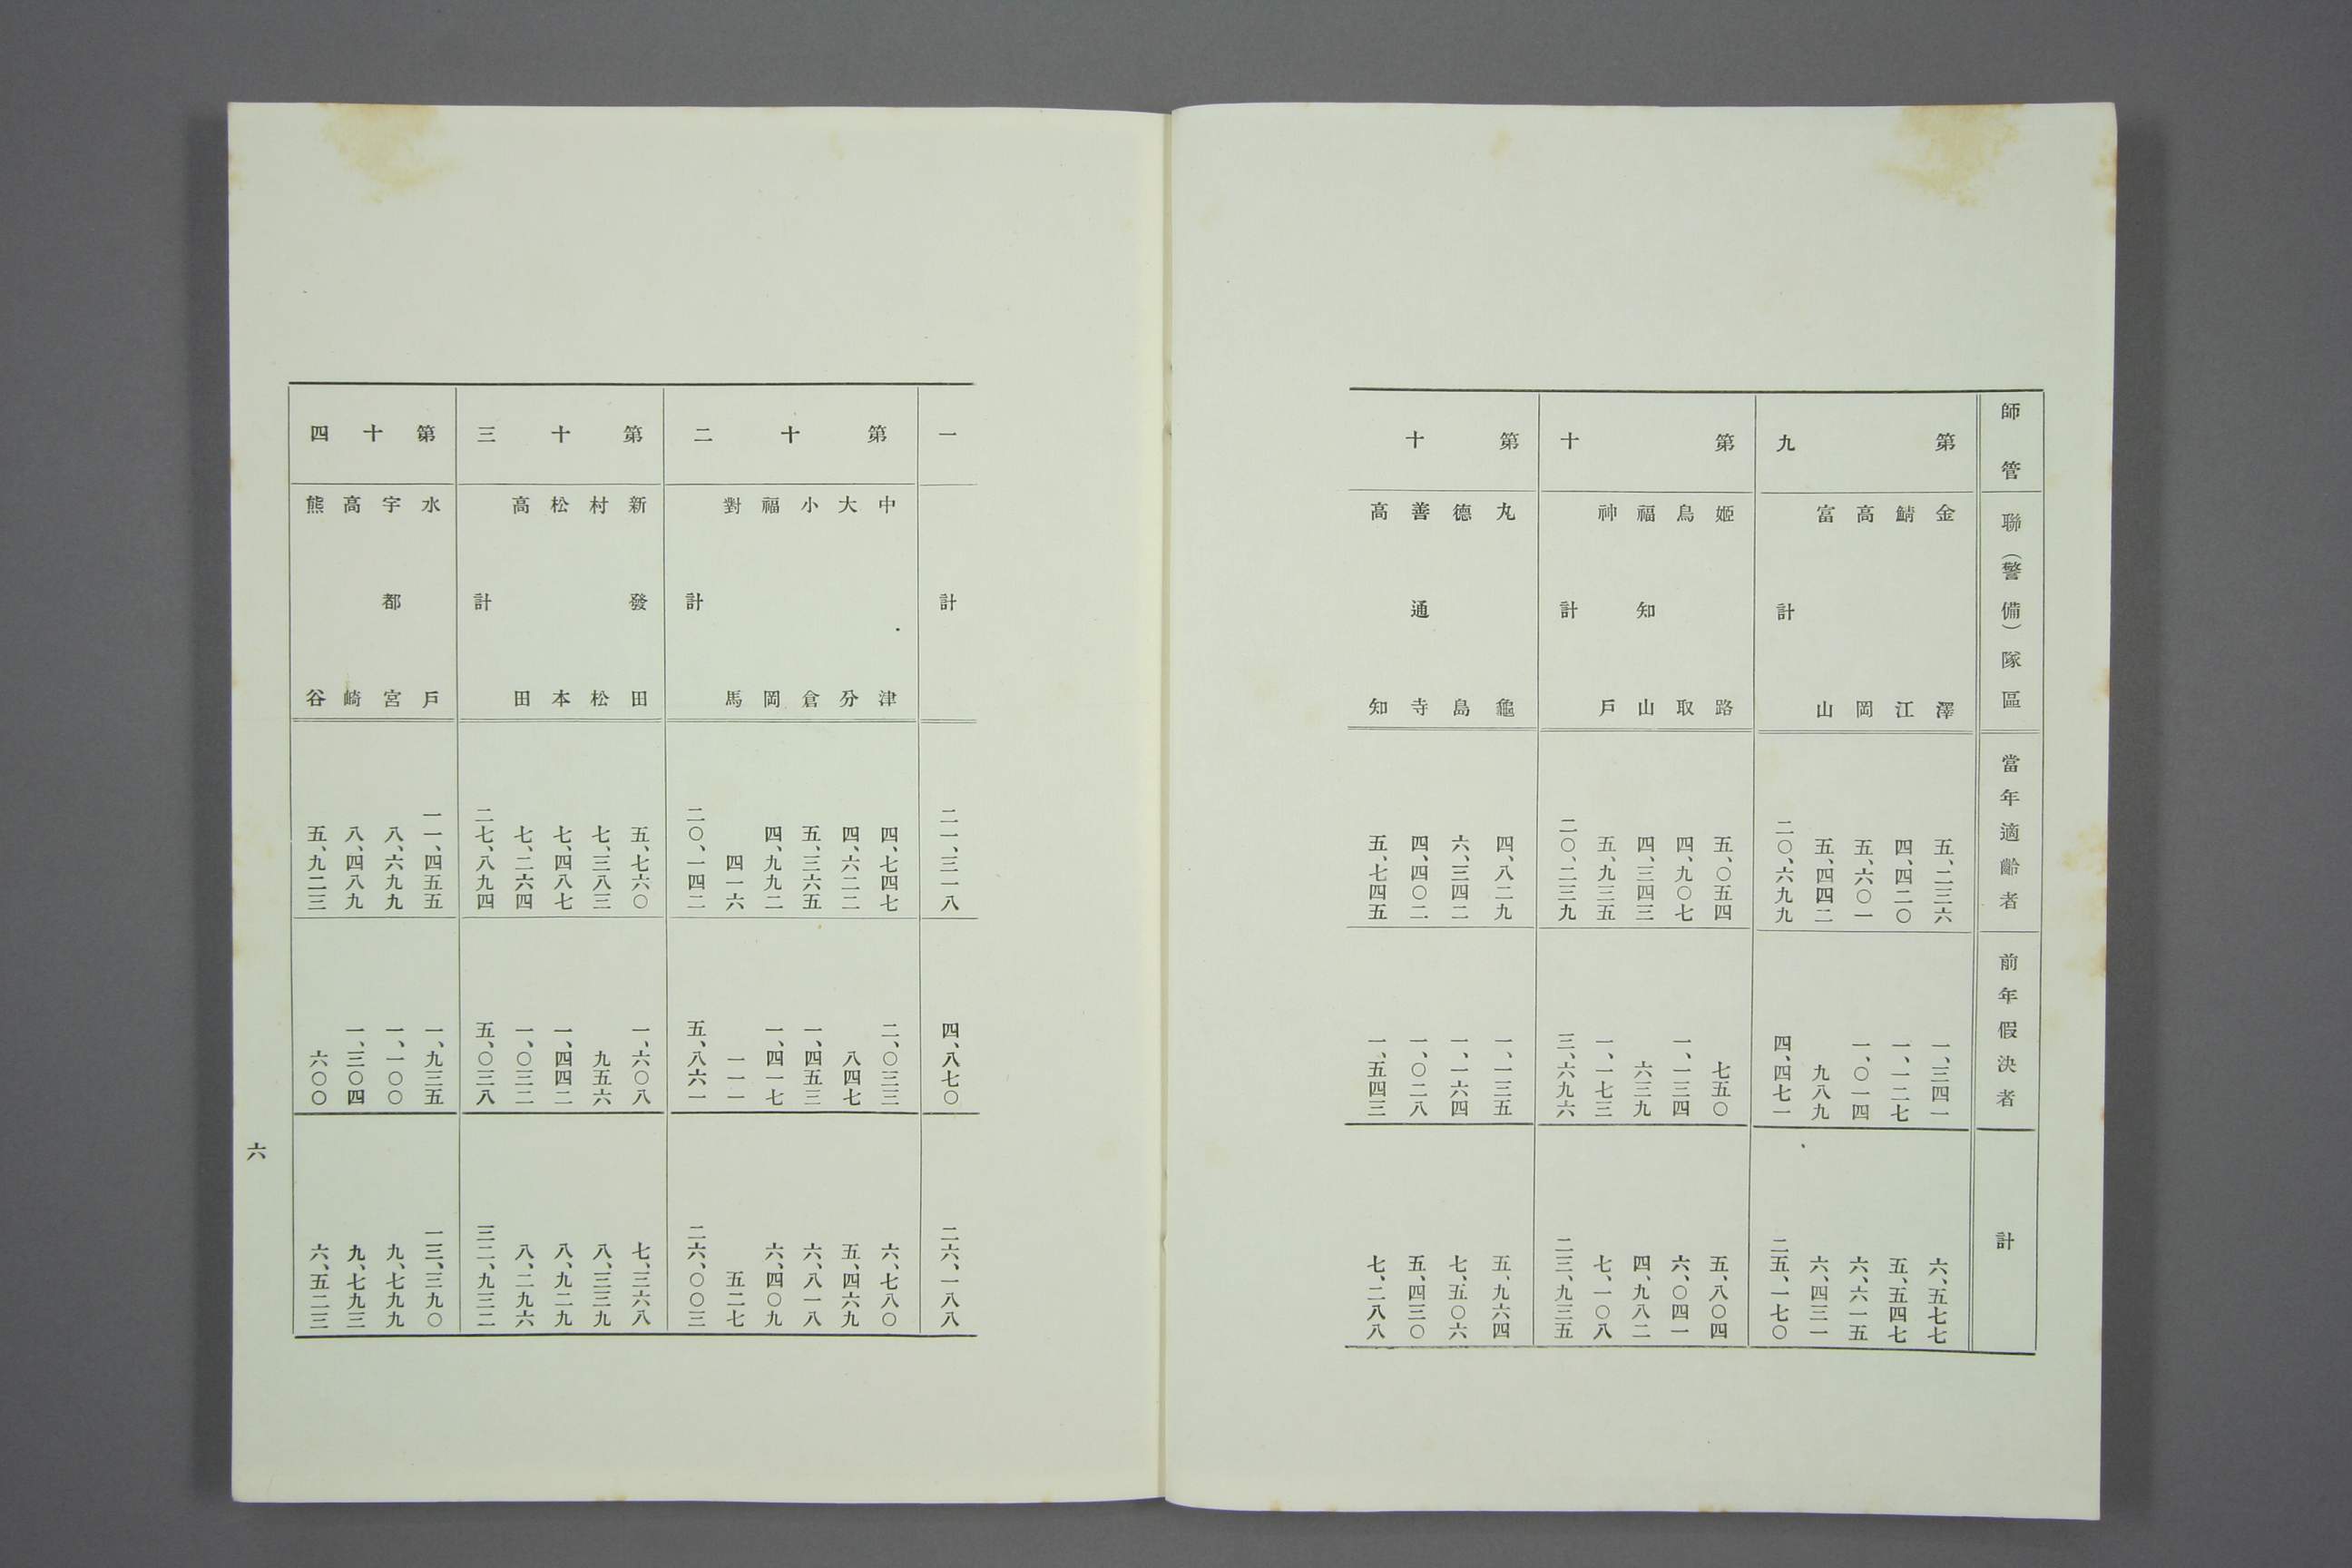 師管
聯(警備)隊區
當年適齡者
前年假決者
計
第九
金澤 五、二三六 一、三四一 六、五七七
鯖江 四、四二〇 一、一二七 五、五四七
高岡 五、六〇一 一、〇一四 六、六一五
富山 五、四四二 九八九 六、四三一
計 二〇、六九九 四、四七一 二五、一七〇
第十
姬路 五、〇五四 七五〇 五、八〇四
鳥取 四、九〇七 一、一三四 六、〇四一
福知山 四、三四三 六三九 四、九八二
神戶 五、九三五 一、一七三 七、一〇八
計 二〇、二三九 三、六九六 二三、九三五
第十
丸龜 四、八二九 一、一三五 五、九六四
德島 六、三四二 一、一六四 七、五〇六
善通寺 四、四〇二 一、〇二八 五、四三〇
高知 五、七四五 一、五四三 七、二八八
一
計 二一、三一八 四、八七〇 二六、一八八
第十二
中津 四、七四七 二、〇三三 六、七八〇
大分 四、六二二 八四七 五、四六九
小倉 五、三六五 一、四五三 六、八一八
福岡 四、九九二 一、四一七 六、四〇九
對馬 四一六 一一一 五二七
計 二〇、一四二 五、八六一 二六、〇〇三
第十三
新發田 五、七六〇 一、六〇八 七、三六八
村松 七、三八三 九五六 八、三三九
松本 七、四八七 一、四四二 八、九二九
高田 七、二六四 一、〇三二 八、二九六
計 二七、八九四 五、〇三八 三二、九三二
第十四
水戶 一一、四五五 一、九三五 一三、三九〇
宇都宮 八、六九九 一、一〇〇 九、七九九
高崎 八、四八九 一、三〇四 九、七九三
熊谷 五、九二三 六〇〇 六、五二三
六